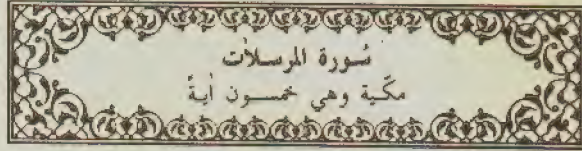 سُورة المرسلاٰت
مكّية وهي خمسون أيةً